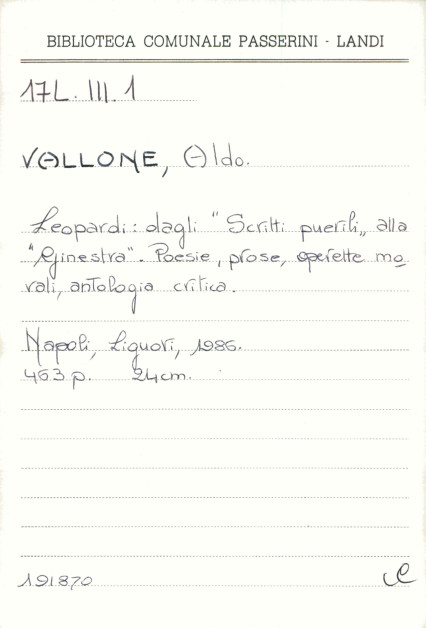 BIBLIOTECA COMUNALE PASSERINI - LANDI
17L. III. 1
VALLONE, Aldo.
Leopardi: dagli "Scritti puerili„ alla
"Ginestra". Poesie, prose, operette mo
rali, antologia critica.
Napoli, Liguori, 1986.
463 p. 24cm.
191870